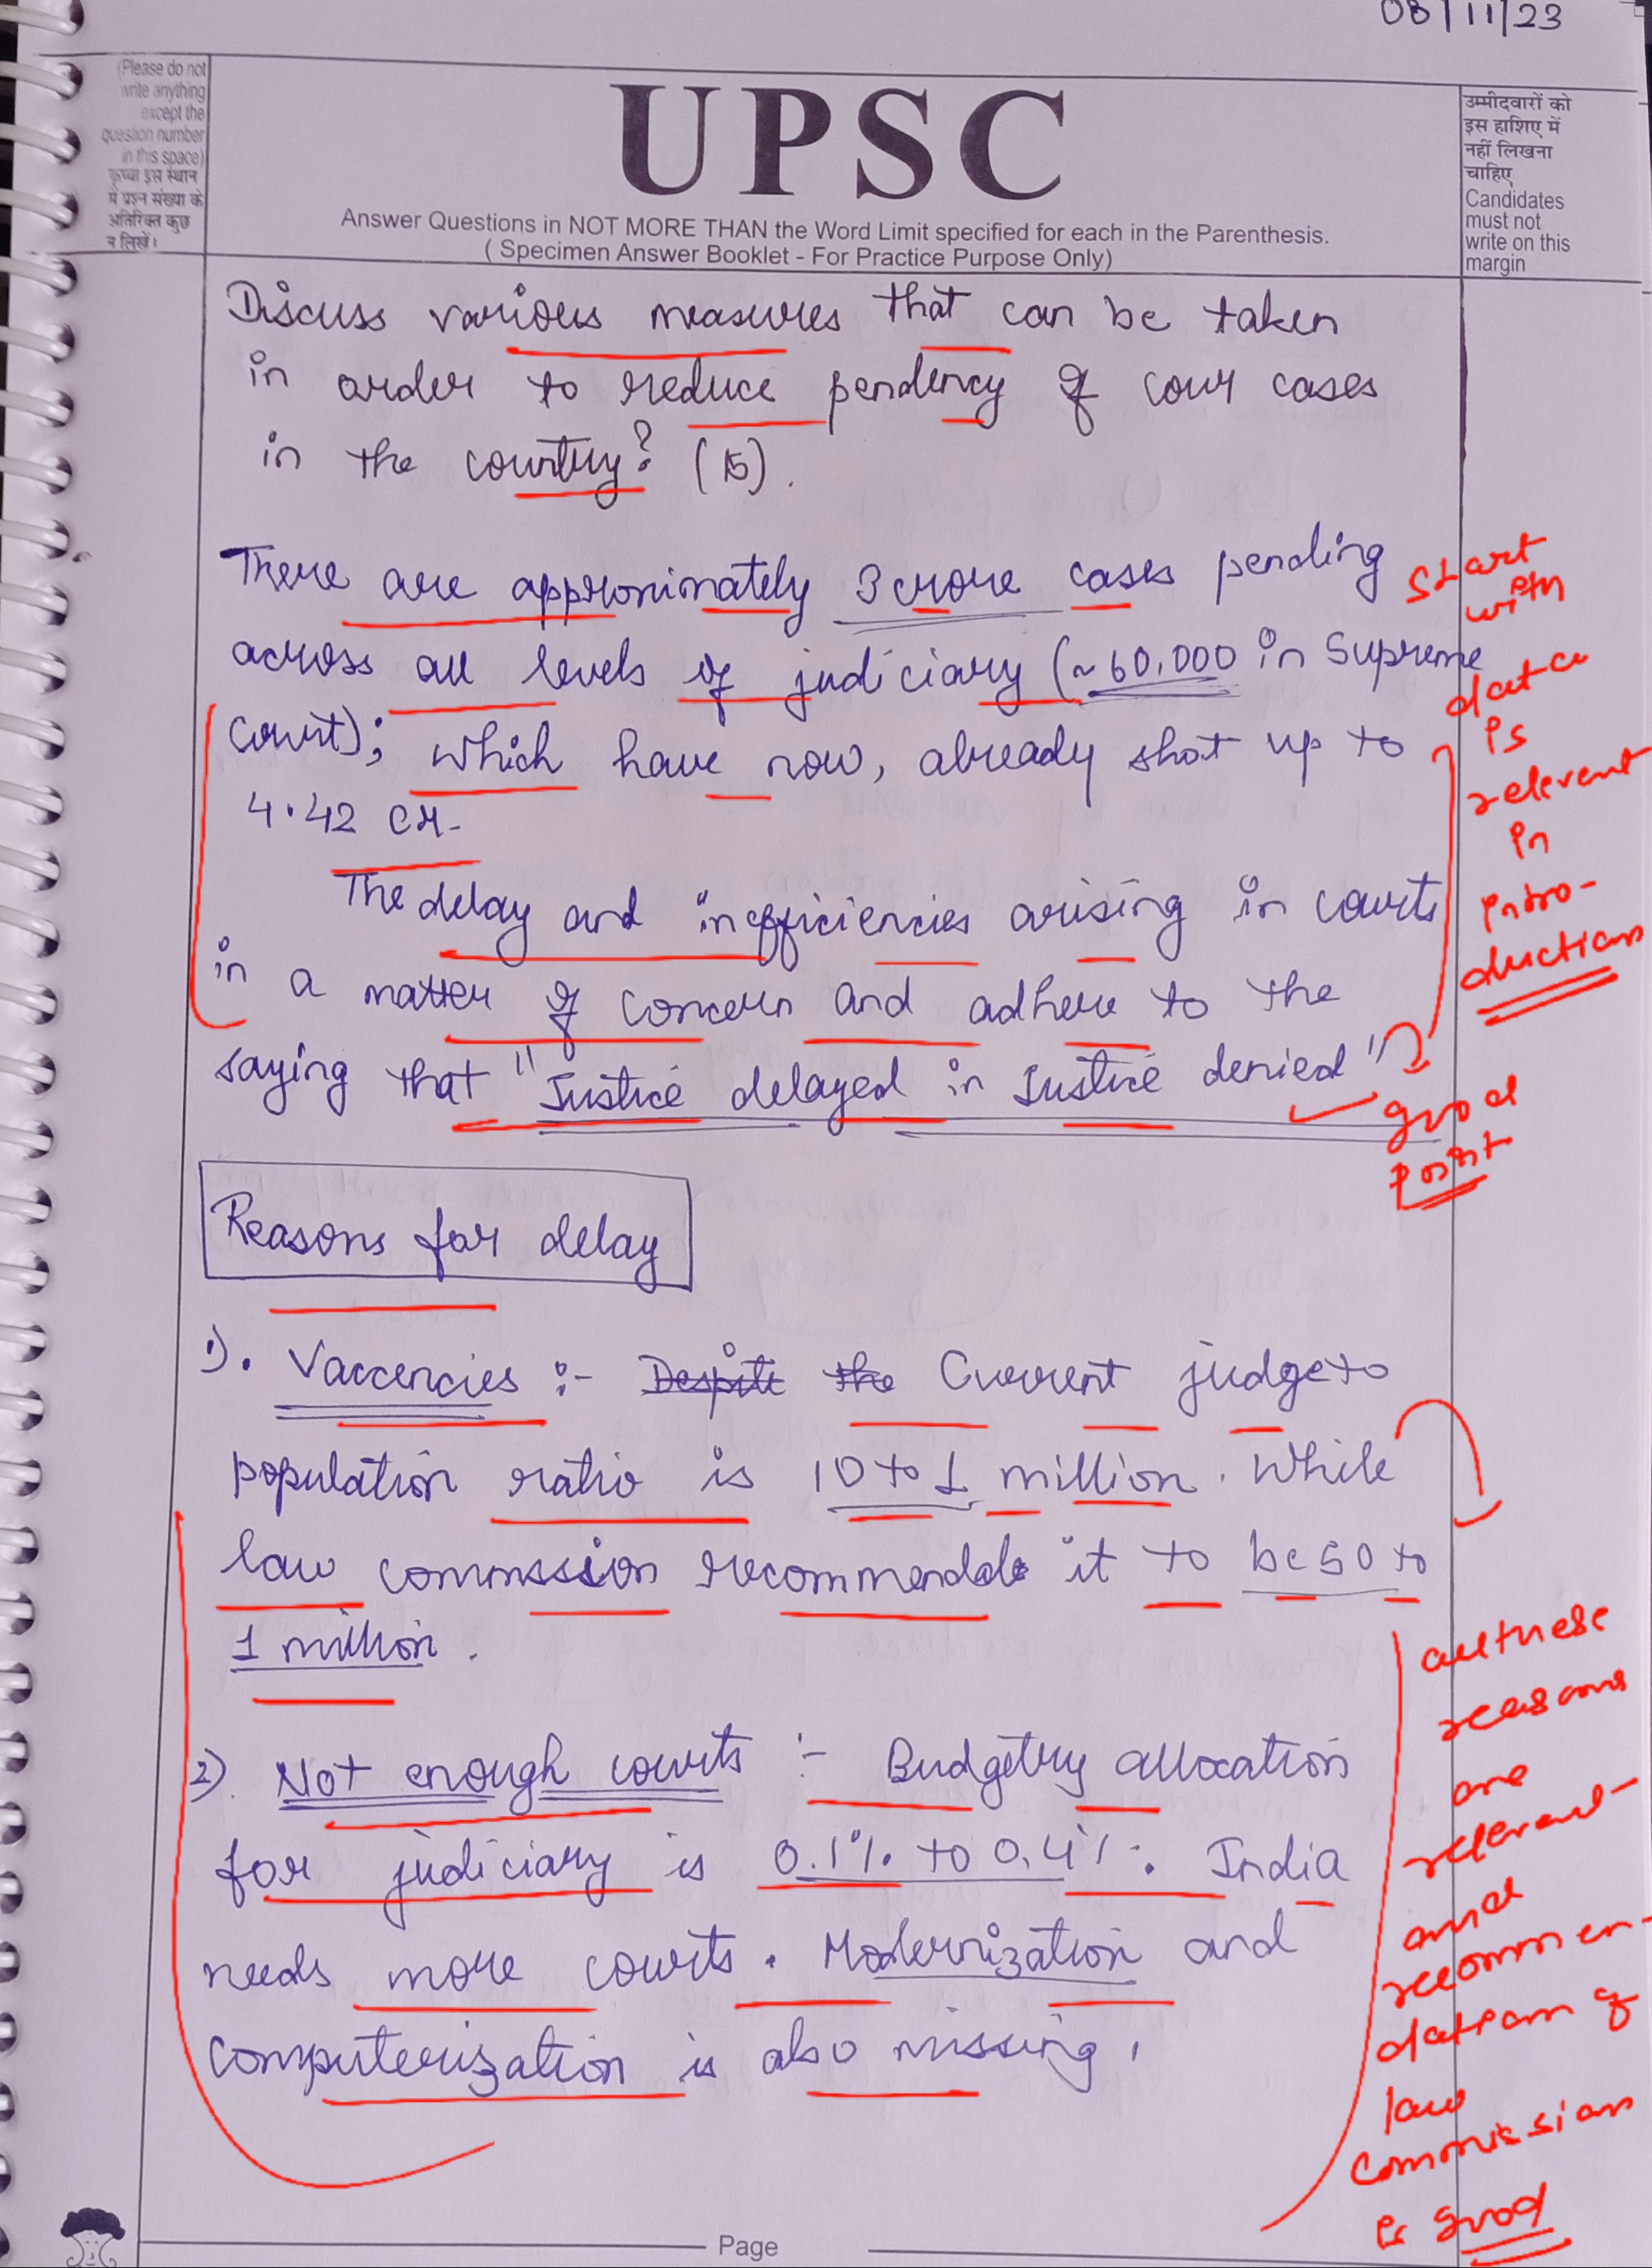 08/11/23
(Please do not
write anything
except the
question number
in this space)
कृप्या इस स्थान
में प्रश्न संख्या के
अतिरिक्त कुछ
न लिखें।
UPSC
Answer Questions in NOT MORE THAN the Word Limit specified for each in the Parenthesis.
( Specimen Answer Booklet - For Practice Purpose Only)
उम्मीदवारों को
इस हाशिए में
नहीं लिखना
चाहिए
Candidates
must not
write on this
margin
Discuss various measures that can be taken
in order to reduce pendency of cour cases
in the country? (15).
There are approximately 3 crore cases pending
across all levels of judiciary (~60,000 in Supreme
court); which have now, already shot up to
4.42 cr.
The delay and inefficiencies arising in courts
in a matter of concern and adhere to the
saying that "Justice delayed in Justice denied"
start
with
data
is
relevent
in
intro-
duction
good
point
Reasons for delay
1). Vaccencies :- Despite the Current judge to
population ratio is 10 to 1 million. While
law commssion recommendds it to be 50 to
1 million.
2) Not enough courts :- Budgetry allocation
for judiciary is 0.1% to 0.4%. India
needs more courts. Modernization and
computerization is also missing.
all these
reasons
are
relevant
and
recommen-
dation of
law
commission
is good
Page